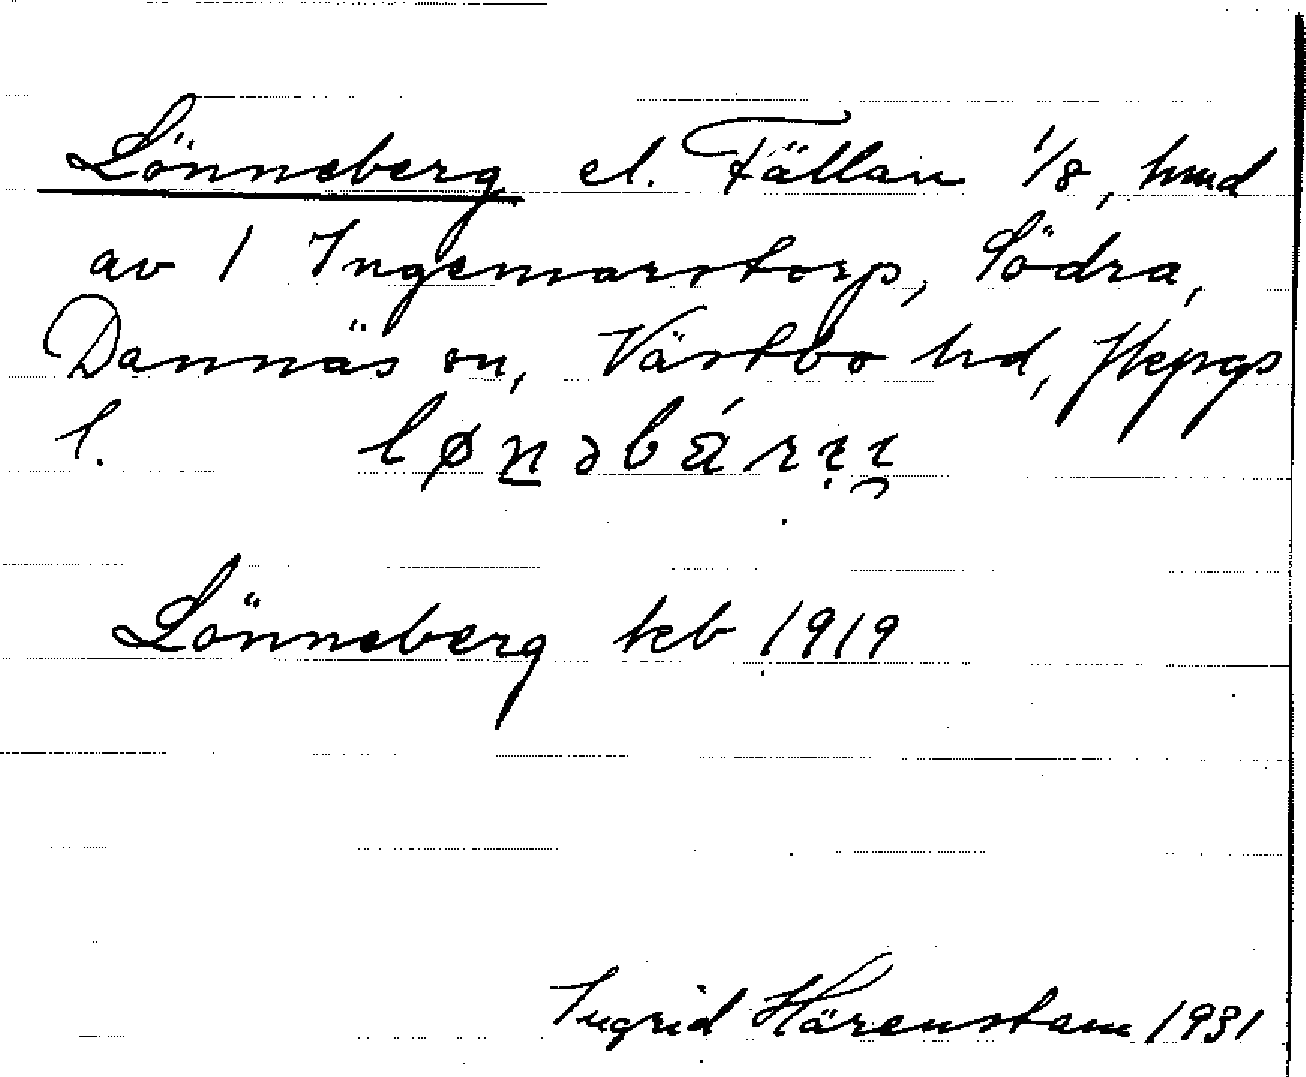 Lönneberg el. Fällan 1/8, hmd
av 1 Ingemarstorp, Södra,
Dannäs sn, Västbo hd, Jkpgs
l.
Lönneberg kb 1919
Ingrid Härenstam 1931